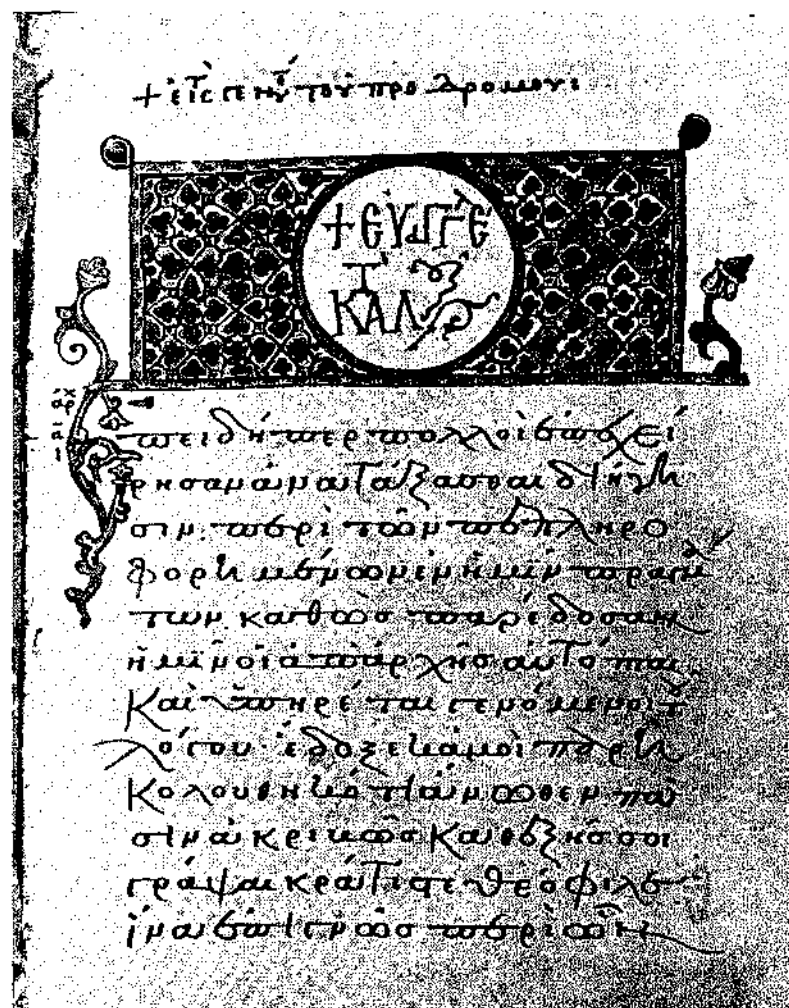 + εἰς τ γενν τοῦ προδρόμου:
+ ΕΥΑΓΓΕ
Ἐπειδήπερ πολλοὶ ἐπεχεί
ρησαν ἀνατάξασθαι διήγη
σιν. περὶ τῶν πεπληρο
φορημένων ἐν ἡμῖν πραγμά
των. καθὼς παρέδοσαν
ἡμῖν οἱ ἀπαρχῆς αὐτόπται
καὶ ὑπηρέται γενόμενοι τοῦ
λόγου· ἔδοξε κἀμοὶ παρη
κολουθηκότι ἄνωθεν πᾶ
σιν ἀκριβῶς καθεξῆς σοι
γράψαι κράτιστε θεόφιλε
ἵνα ἐπιγνῶς περὶ ὧν